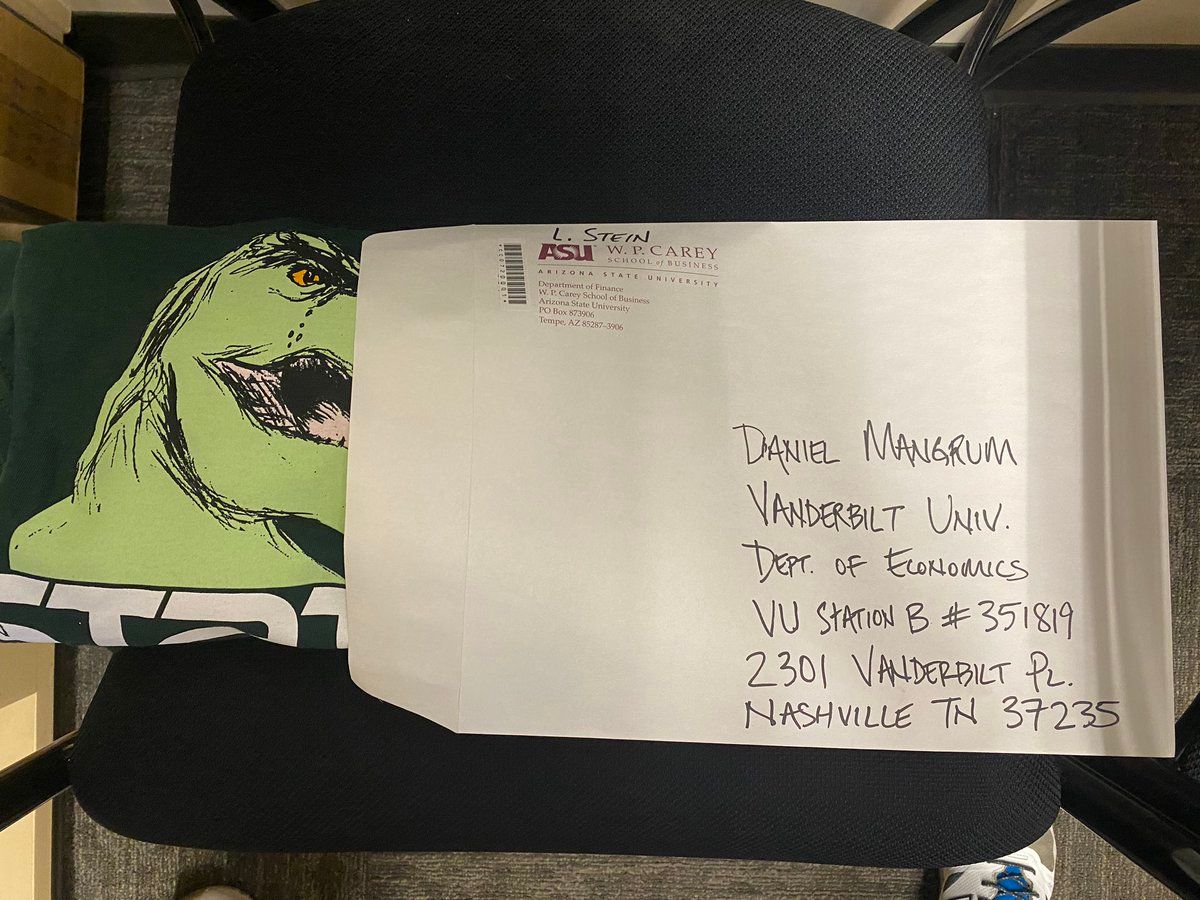 L. STEIN
ASU W. P. CAREY
SCHOOL of BUSINESS
ARIZONA STATE UNIVERSITY
Department of Finance
W. P. Carey School of Business
Arizona State University
PO Box 873906
Tempe, AZ 85287–3906
DANIEL MANGRUM
VANDERBILT UNIV.
DEPT. OF ECONOMICS
VU STATION B # 351819
2301 VANDERBILT PL.
NASHVILLE TN 37235